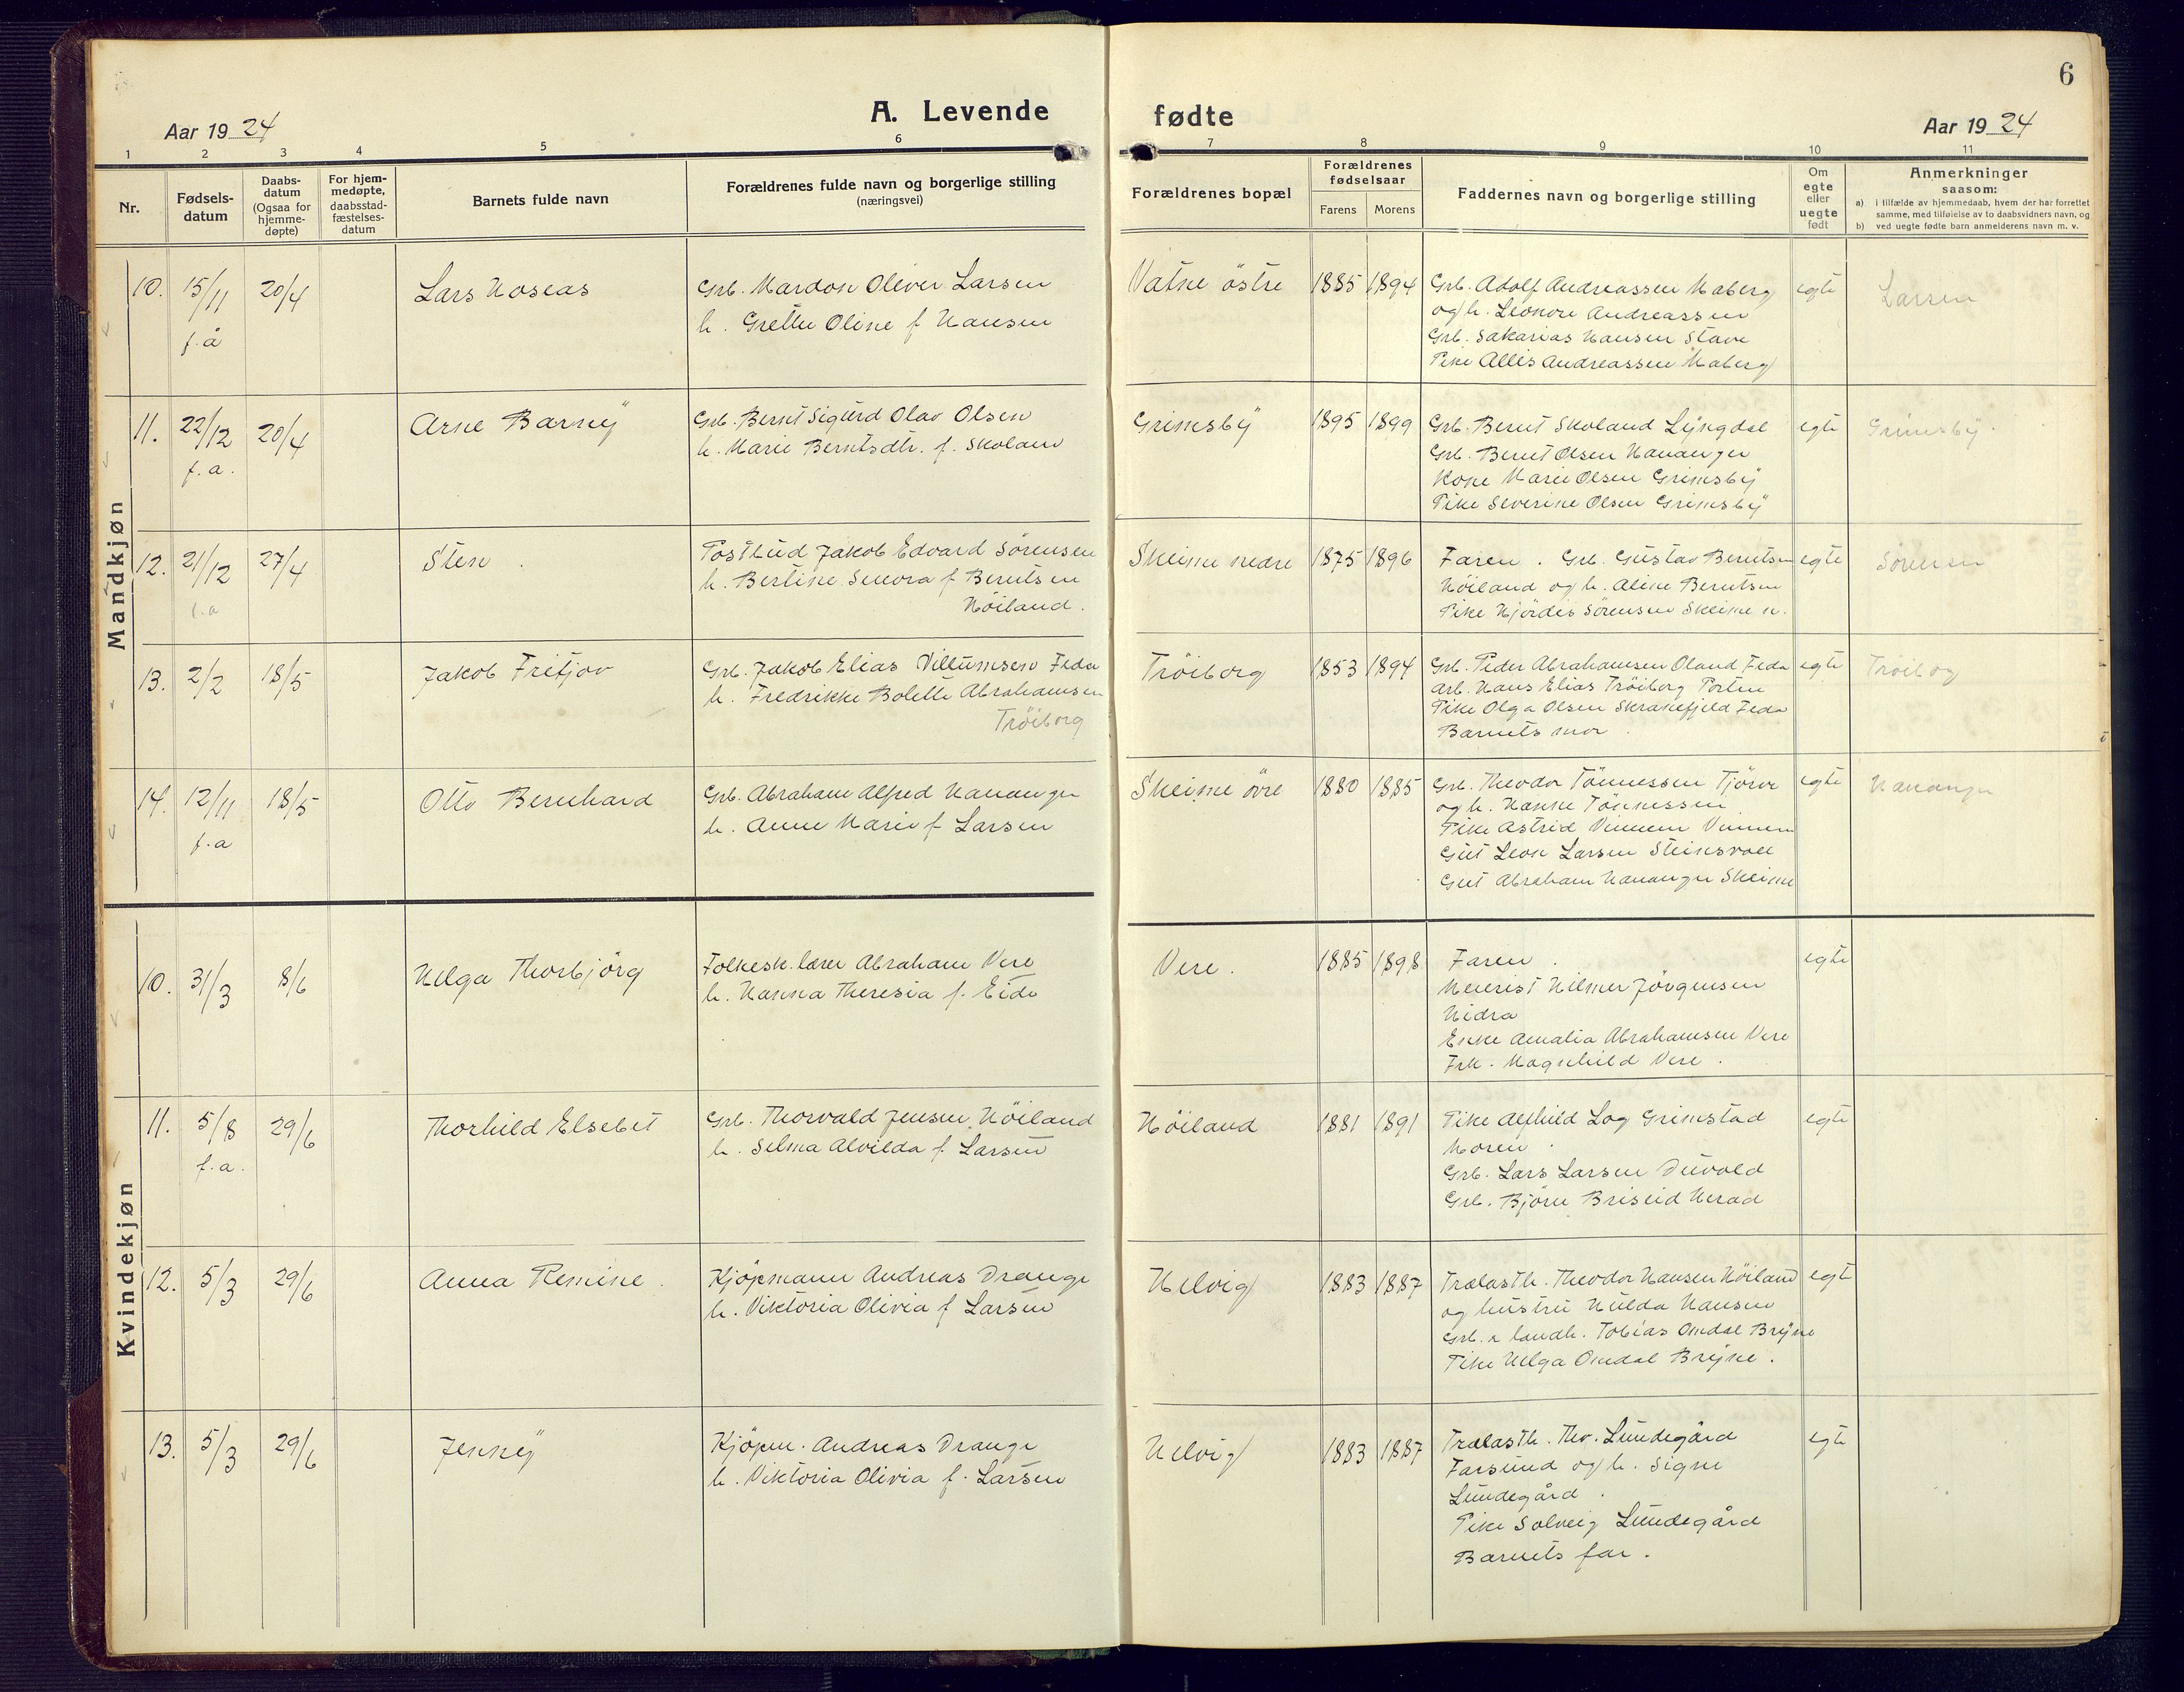 6
A. Levende fødte
Aar 1924
Aar 1924
1 2 3 4 5 6 7 8 9 10 11
Nr.
Fødsels-
datum
Daabs-
datum
(Ogsaa for
hjemme-
døpte)
For hjem-
medøpte,
daabsstad-
fæstelses-
datum
Barnets fulde navn
Forældrenes fulde navn og borgerlige stilling
(næringsvei)
Forældrenes bopæl
Forældrenes
fødselsaar
Farens Morens
Faddernes navn og borgerlige stilling
Om
egte
eller
uegte
født
Anmerkninger
saasom:
a) i tilfælde av hjemmedaab, hvem der har forrettet
samme, med tilføielse av to daabsvidners navn, og
b) ved uegte fødte barn anmelderens navn m. v.
Mandkjøn
10. 15/11 20/4 Lars Hoseas
f. å
Grb. Mardon Oliver Larsen
h. Grethe Oline f Hansen
Vatne östre 1885 1894
Grb. Adolf Andreassen Maberg
og h. Leonore Andreassen
Grb. Sakarias Hansen Stave
Pike Allis Andreassen Maberg
egte
Larsen
11. 22/12 20/4 Arne Barny
f. a.
Grb. Bernt Sigurd Olav Olsen
h. Marie Berntsdtr. f. Skoland
Grimsby 1895 1899
Grb. Bernt Skoland Lyngdal
Grb. Bernt Olsen Hananger
Kone Marie Olsen Grimsby
Pike Severine Olsen Grimsby
egte
Grimsby.
12. 21/12 27/4 Sten
f. a
Postbud Jakob Edvard Sörensen
h. Bertine Senora f Berntsen
Höiland.
Skeime nedre 1875 1896
Faren. Grb. Gustav Berntsen
Höiland og h. Aline Berntsen
Pike Hjördis Sörensen Skeime n.
egte
Sörensen
13. 2/2 18/5 Jakob Fritjov
Grb. Jakob Elias Villumsen Feda
h. Fredrikke Bolette Abrahamsen
Tröiborg
Tröiborg 1853 1894
Grb. Peder Abrahamsen Oland Feda
Arb. Hans Elias Tröiborg Porten
Pike Olga Olsen Skrakefjeld Feda
Barnets mor.
egte
Tröiborg
14. 12/11 18/5 Otto Bernhard
f. a
Grb. Abraham Alfred Hananger
h. Anne Marie f Larsen
Skeime övre 1880 1885
Grb. Theodor Tönnessen Tjörve
og h. Hanne Tönnessen
Pike Astrid Vinnem Vinnem
Gut Leon Larsen Steinsvoll
Gut Abraham Hananger Skeime
egte
Hananger
Kvindekjøn
10. 31/3 8/6 Helga Thorbjörg
Folkesk. lærer Abraham Vere
h. Hanna Theresia f. Eide
Vere. 1885 1898
Faren.
Meierist Hilmer Jörgensen
Hidra
Enke Amalia Abrahamsen Vere
Frk. Magnhild Vere.
egte
11. 5/8 29/6 Thorhild Elsebet
f. a.
Grb. Thorvald Jensen Höiland
h. Selma Alvilda f. Larsen
Höiland 1881 1891
Pike Alfhild Log Grimstad
Moren.
Grb. Lars Larsen Duvold
Grb. Björn Briseid Herad
egte
12. 5/3 29/6 Anna Remine.
Kjöpmann Andreas Drange
h. Viktoria Olivia f Larsen
Helvig 1883 1887
Trælasth. Theodor Hansen Höiland
og hustru Hulda Hansen
Grb. & landh. Tobias Omdal Bryne
Pike Helga Omdal Bryne.
egte
13. 5/3 29/6 Jenny
Kjöpm. Andreas Drange
h. Viktoria Olivia f. Larsen
Helvig 1883 1887
Trælasth. Thv. Lundegård
Farsund og h. Signe
Lundegård.
Pike Solveig Lundegård
Barnets far.
egte